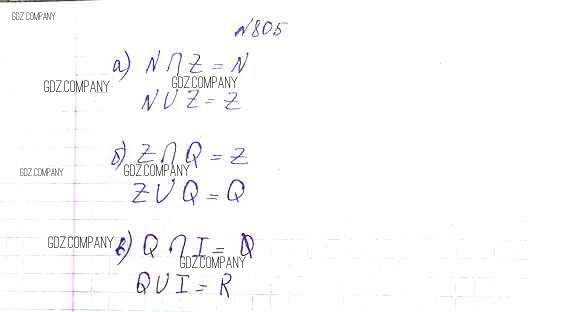 GDZ.COMPANY
№805
а) N ∩ Z = N
GDZ.COMPANY GDZ.COMPANY
N ∪ Z = Z
б) Z ∩ Q = Z
GDZ.COMPANY GDZ.COMPANY
Z ∪ Q = Q
GDZ.COMPANY в) Q ∩ I =
GDZ.COMPANY
Q ∪ I = R